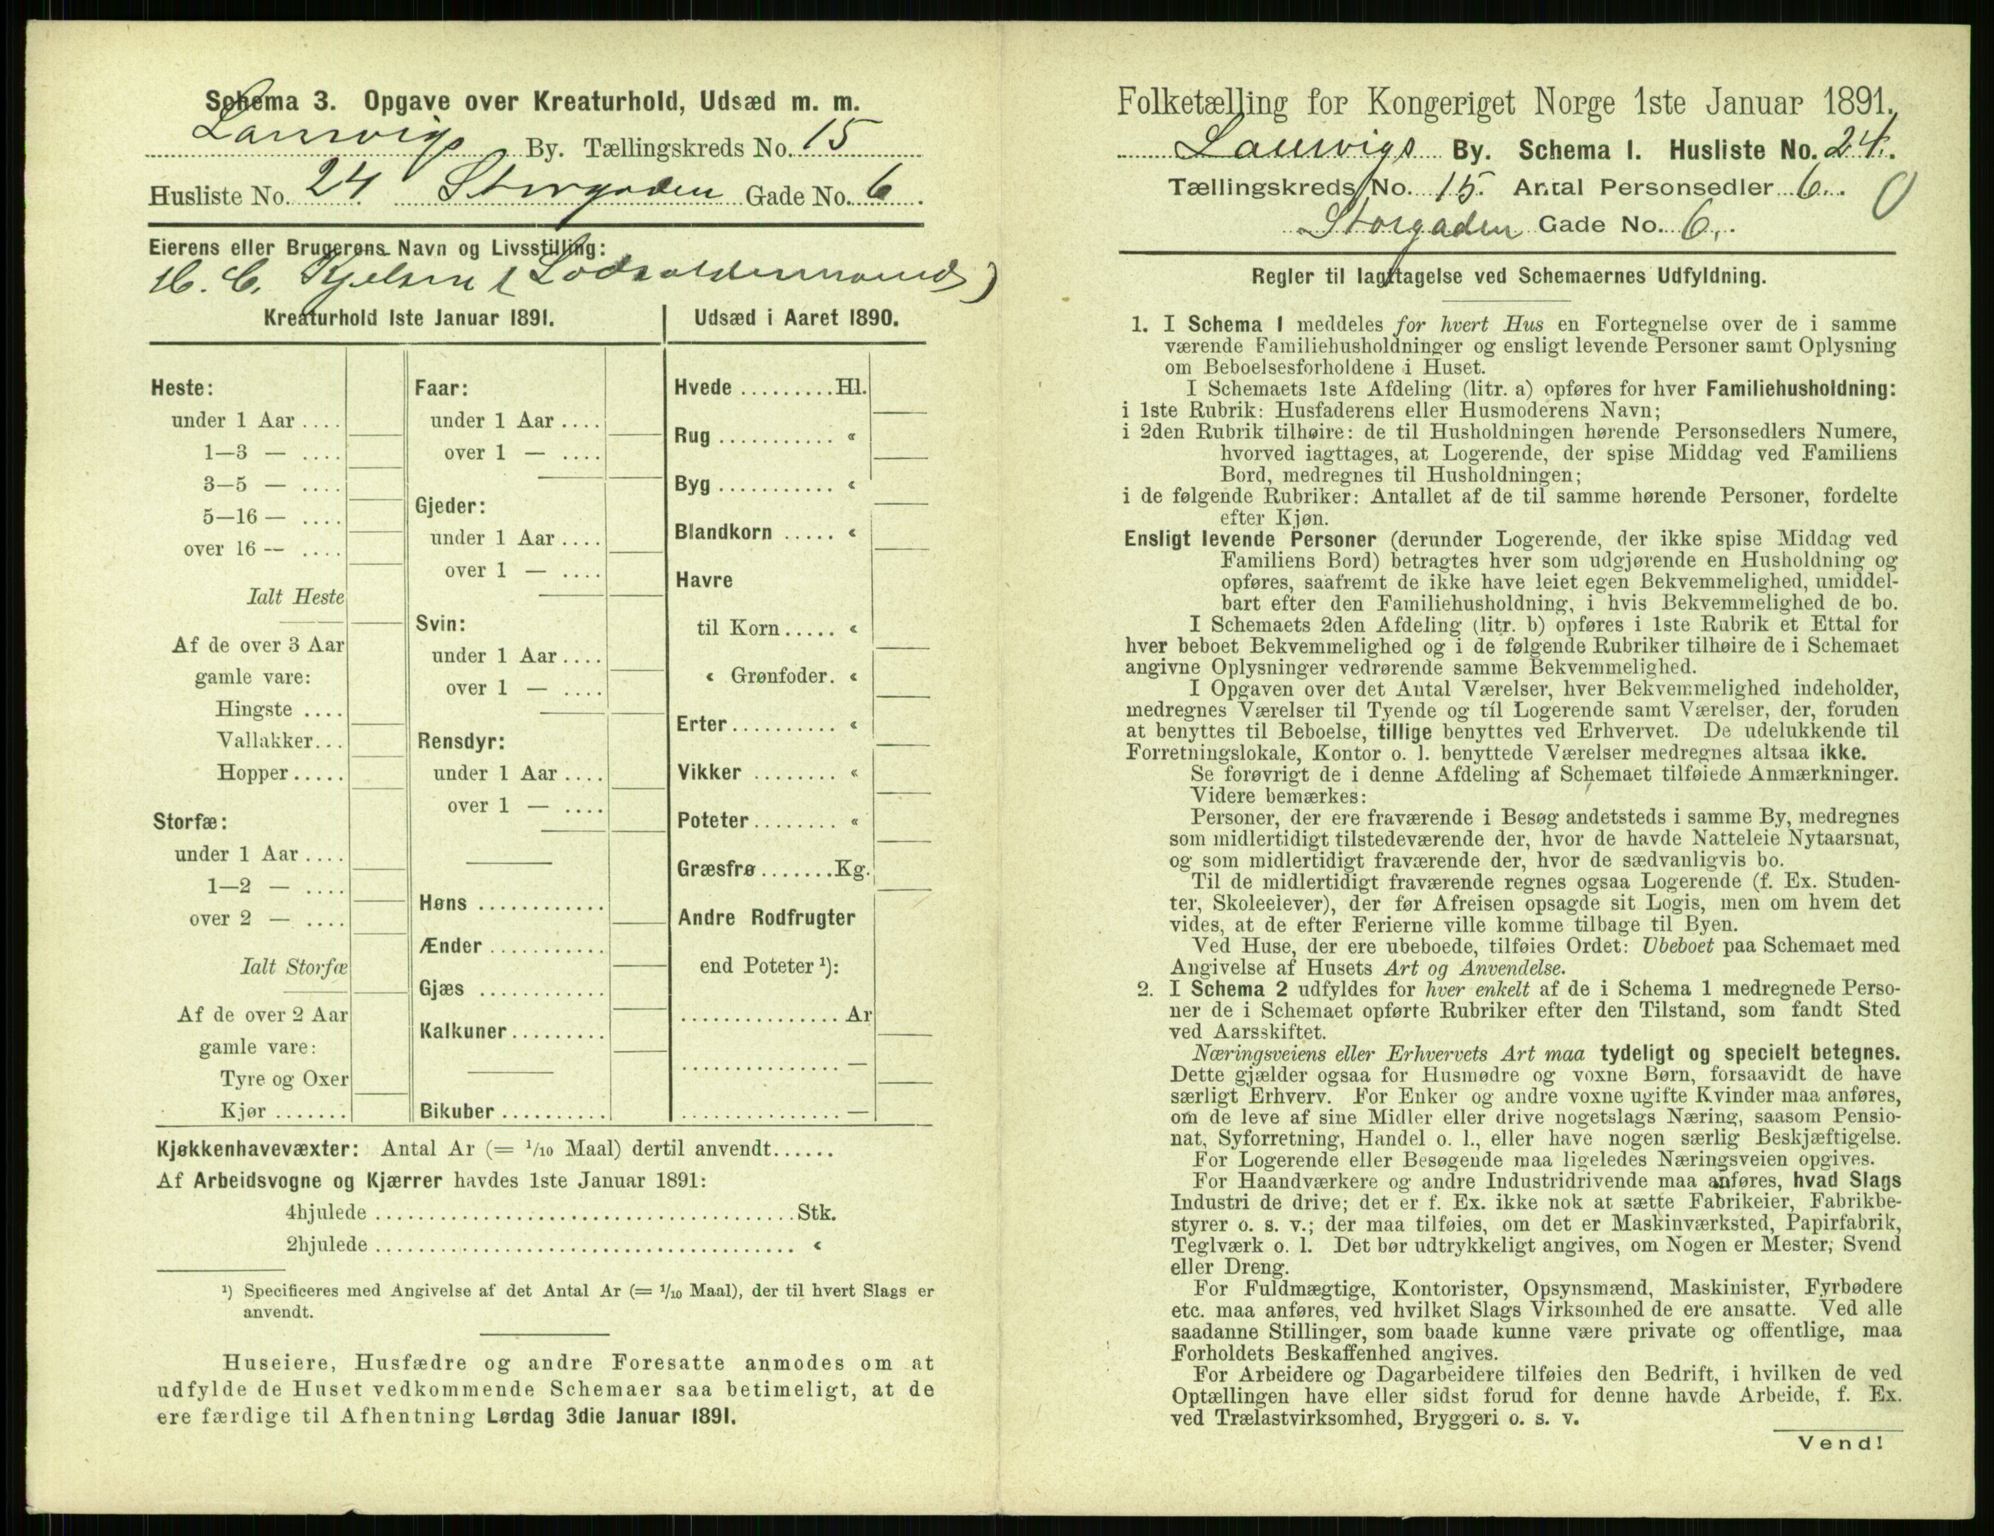 Schema 3. Opgave over Kreaturhold, Udsæd m. m.
Laurvigs By. Tællingskreds No. 15
Husliste No. 24. Storgaden Gade No. 6.
Eierens eller Brugerens Navn og Livsstilling:
H. C. Kjelsen (Lodsoldermand)
Kreaturhold 1ste Januar 1891.
Udsæd i Aaret 1890.
Heste:
under 1 Aar ....
1—3 — ....
3—5 — ....
5—16 — ....
over 16 — ....
Ialt Heste
Af de over 3 Aar
gamle vare:
Hingste ....
Vallakker...
Hopper .....
Storfæ:
under 1 Aar ....
1—2 — ....
over 2 — ....
Ialt Storfæ
Af de over 2 Aar
gamle vare:
Tyre og Oxer
Kjør .......
Faar:
under 1 Aar ....
over 1 — ....
Gjeder:
under 1 Aar ....
over 1 — ....
Svin:
under 1 Aar ....
over 1 — ....
Rensdyr:
under 1 Aar ....
over 1 — ....
Høns ............
Ænder ...........
Gjæs ............
Kalkuner .........
Bikuber ..........
Hvede ......... Hl.
Rug ........... «
Byg ........... «
Blandkorn ..... «
Havre
til Korn ..... «
« Grønfoder. «
Erter .......... «
Vikker ........ «
Poteter ........ «
Græsfrø ....... Kg.
Andre Rodfrugter
end Poteter ¹):
............... Ar
............... —
............... —
Kjøkkenhavevæxter: Antal Ar (= 1/10 Maal) dertil anvendt......
Af Arbeidsvogne og Kjærrer havdes 1ste Januar 1891:
4hjulede ........................................ Stk.
2hjulede ........................................ «
¹) Specificeres med Angivelse af det Antal Ar (= 1/10 Maal), der til hvert Slags er
anvendt.
Huseiere, Husfædre og andre Foresatte anmodes om at
udfylde de Huset vedkommende Schemaer saa betimeligt, at de
ere færdige til Afhentning Lørdag 3die Januar 1891.
Folketælling for Kongeriget Norge 1ste Januar 1891.
Laurvigs By. Schema 1. Husliste No. 24.
Tællingskreds No. 15. Antal Personsedler 6.
Storgaden Gade No. 6.
Regler til Iagttagelse ved Schemaernes Udfyldning.
1. I Schema 1 meddeles for hvert Hus en Fortegnelse over de i samme
værende Familiehusholdninger og ensligt levende Personer samt Oplysning
om Beboelsesforholdene i Huset.
I Schemaets 1ste Afdeling (litr. a) opføres for hver Familiehusholdning:
i 1ste Rubrik: Husfaderens eller Husmoderens Navn;
i 2den Rubrik tilhøire: de til Husholdningen hørende Personsedlers Numere,
hvorved iagttages, at Logerende, der spise Middag ved Familiens
Bord, medregnes til Husholdningen;
i de følgende Rubriker: Antallet af de til samme hørende Personer, fordelte
efter Kjøn.
Ensligt levende Personer (derunder Logerende, der ikke spise Middag ved
Familiens Bord) betragtes hver som udgjørende en Husholdning og
opføres, saafremt de ikke have leiet egen Bekvemmelighed, umiddel-
bart efter den Familiehusholdning, i hvis Bekvemmelighed de bo.
I Schemaets 2den Afdeling (litr. b) opføres i 1ste Rubrik et Ettal for
hver beboet Bekvemmelighed og i de følgende Rubriker tilhøire de i Schemaet
angivne Oplysninger vedrørende samme Bekvemmelighed.
I Opgaven over det Antal Værelser, hver Bekvemmelighed indeholder,
medregnes Værelser til Tyende og til Logerende samt Værelser, der, foruden
at benyttes til Beboelse, tillige benyttes ved Erhvervet. De udelukkende til
Forretningslokale, Kontor o. l. benyttede Værelser medregnes altsaa ikke.
Se forøvrigt de i denne Afdeling af Schemaet tilføiede Anmærkninger.
Videre bemærkes:
Personer, der ere fraværende i Besøg andetsteds i samme By, medregnes
som midlertidigt tilstedeværende der, hvor de havde Natteleie Nytaarsnat,
og som midlertidigt fraværende der, hvor de sædvanligvis bo.
Til de midlertidigt fraværende regnes ogsaa Logerende (f. Ex. Studen-
ter, Skoleelever), der før Afreisen opsagde sit Logis, men om hvem det
vides, at de efter Ferierne ville komme tilbage til Byen.
Ved Huse, der ere ubeboede, tilføies Ordet: Ubeboet paa Schemaet med
Angivelse af Husets Art og Anvendelse.
2. I Schema 2 udfyldes for hver enkelt af de i Schema 1 medregnede Perso-
ner de i Schemaet opførte Rubriker efter den Tilstand, som fandt Sted
ved Aarsskiftet.
Næringsveiens eller Erhvervets Art maa tydeligt og specielt betegnes.
Dette gjælder ogsaa for Husmødre og voxne Børn, forsaavidt de have
særligt Erhverv. For Enker og andre voxne ugifte Kvinder maa anføres,
om de leve af sine Midler eller drive nogetslags Næring, saasom Pensio-
nat, Syforretning, Handel o. l., eller have nogen særlig Beskjæftigelse.
For Logerende eller Besøgende maa ligeledes Næringsveien opgives.
For Haandværkere og andre Industridrivende maa anføres, hvad Slags
Industri de drive; det er f. Ex. ikke nok at sætte Fabrikeier, Fabrikbe-
styrer o. s. v.; der maa tilføies, om det er Maskinværksted, Papirfabrik,
Teglværk o. l. Det bør udtrykkeligt angives, om Nogen er Mester, Svend
eller Dreng.
For Fuldmægtige, Kontorister, Opsynsmænd, Maskinister, Fyrbødere
etc. maa anføres, ved hvilket Slags Virksomhed de ere ansatte. Ved alle
saadanne Stillinger, som baade kunne være private og offentlige, maa
Forholdets Beskaffenhed angives.
For Arbeidere og Dagarbeidere tilføies den Bedrift, i hvilken de ved
Optællingen have eller sidst forud for denne havde Arbeide, f. Ex.
ved Trælastvirksomhed, Bryggeri o. s. v.
Vend!